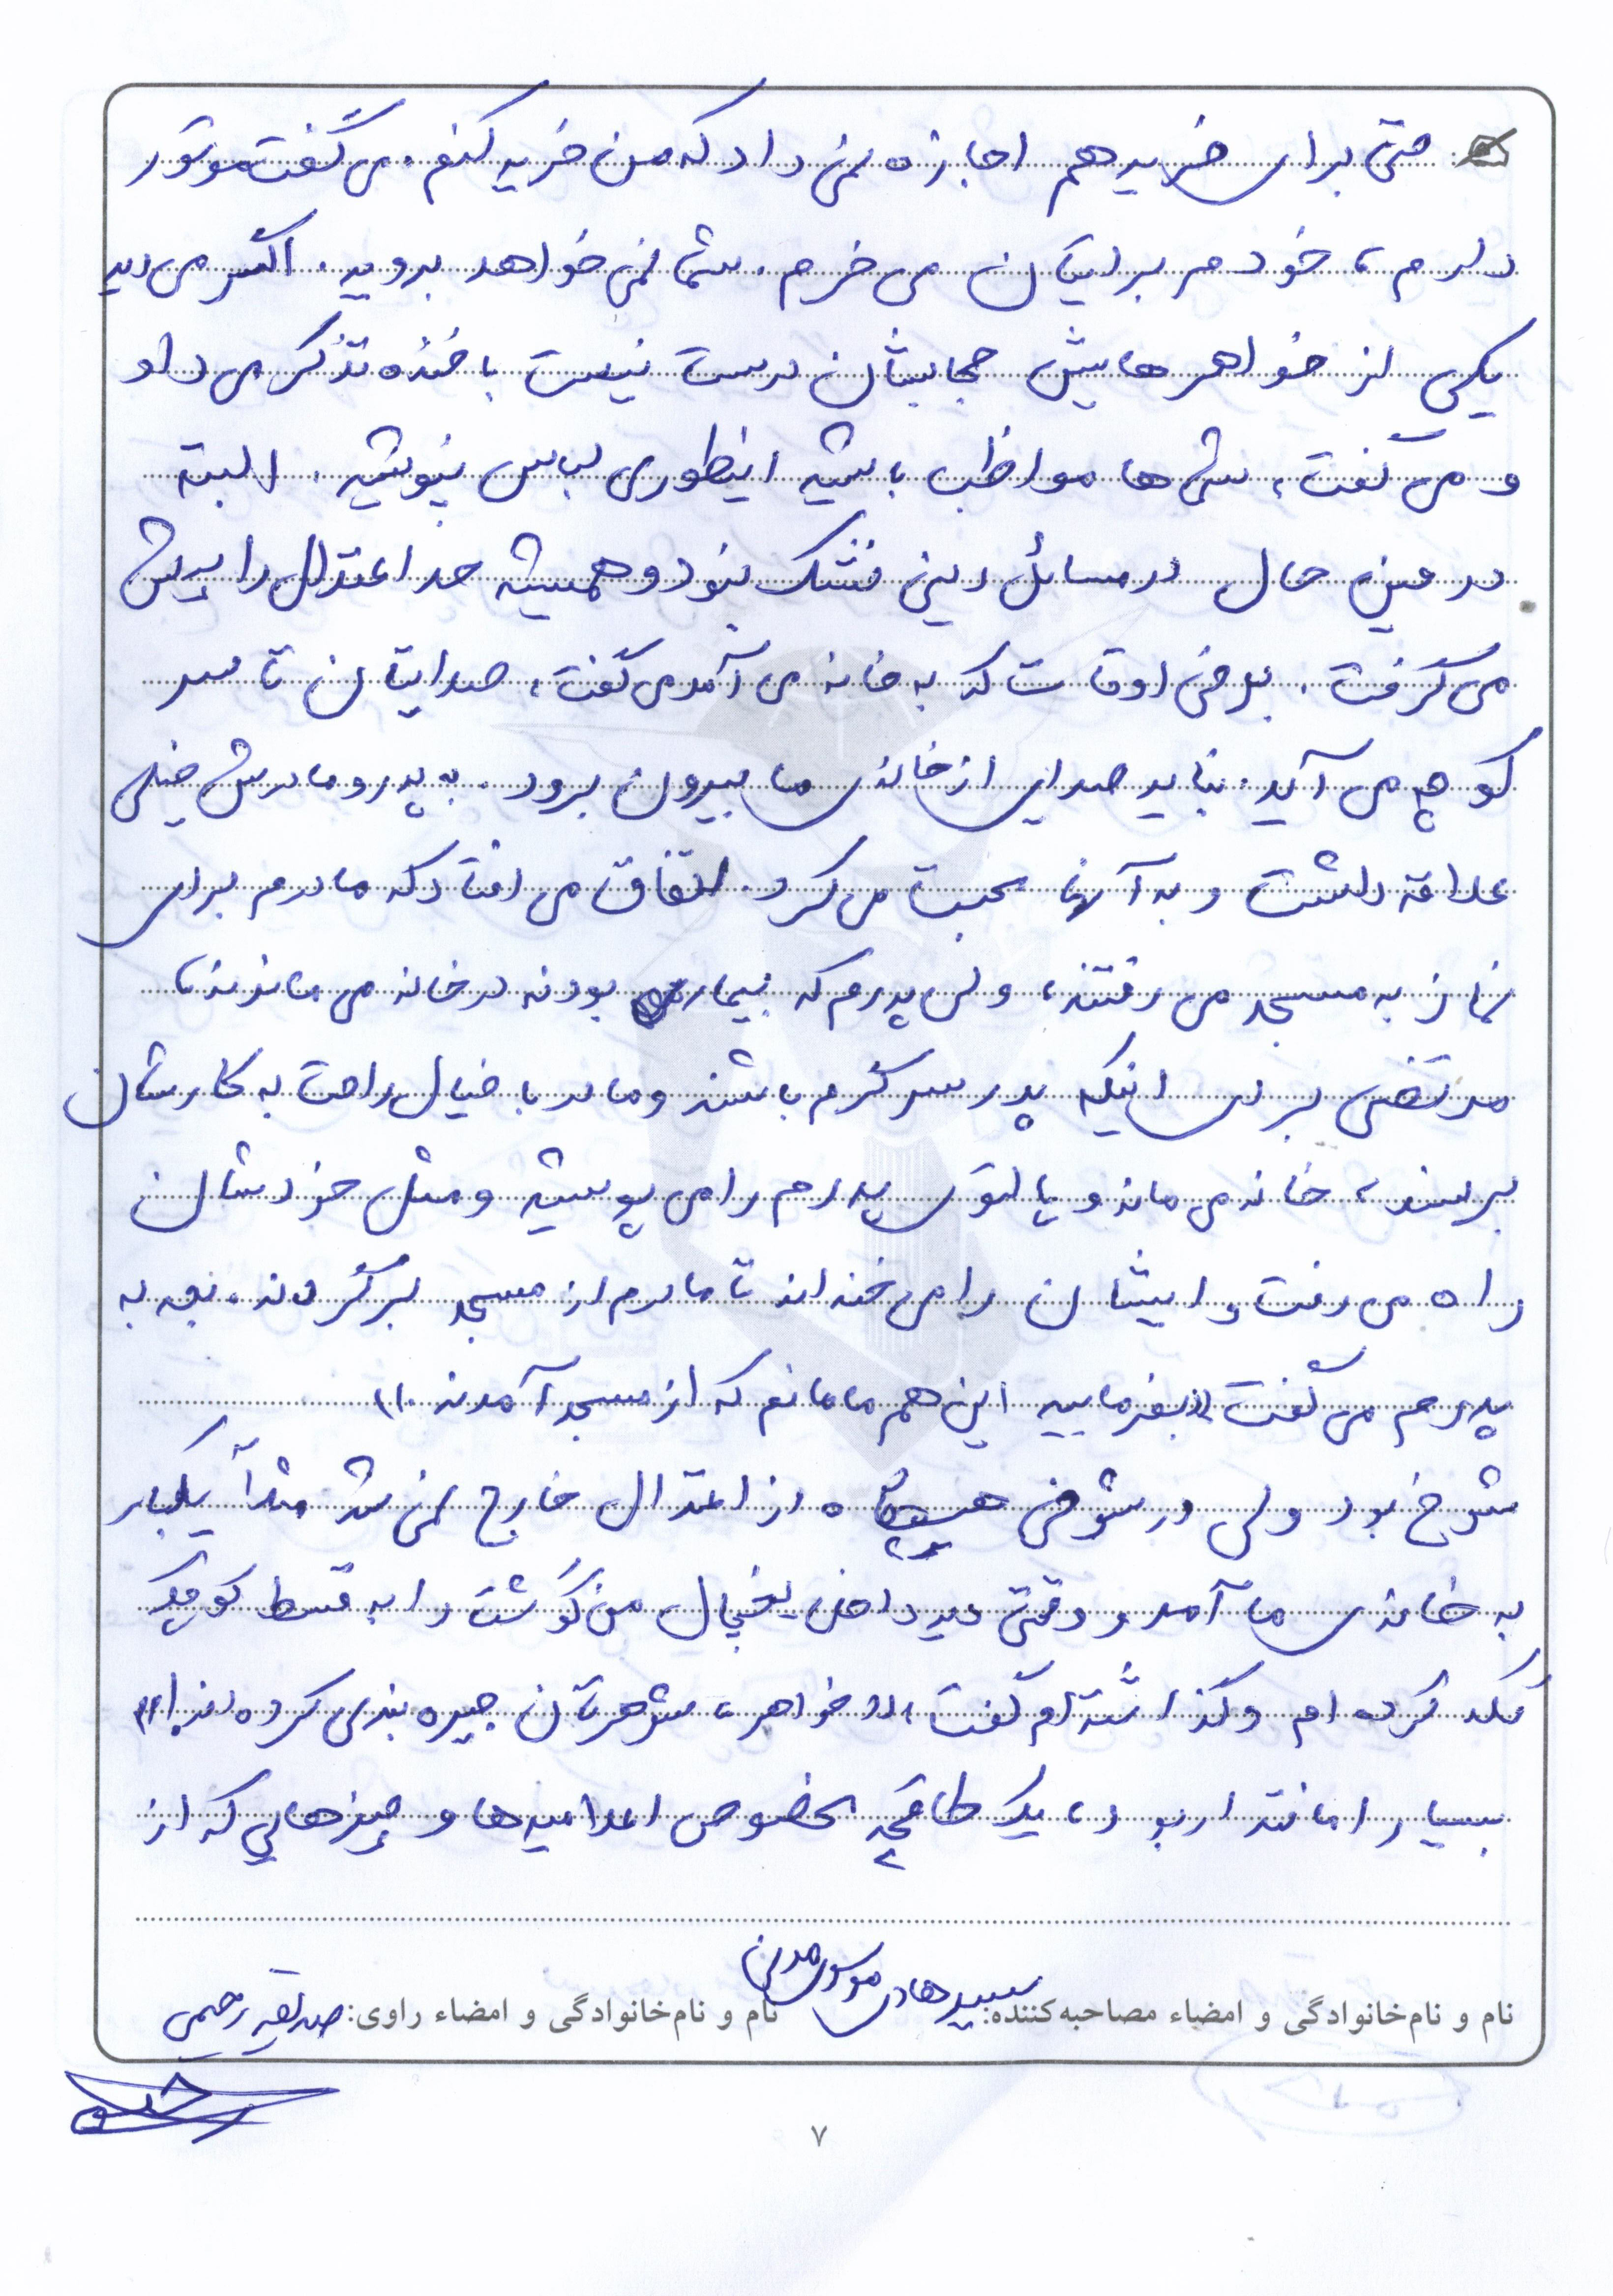 حتی برای خرید هم اجازه نمی داد که من خرید کنم. می گفت موتور
دارم، خودم برایتان می خرم. شما نمی خواهد بروید. اگر می دید
یکی از خواهرهایش حجابشان درست نیست با خنده تذکر می داد
و می گفت، شما ها مواظب باشید اینطوری لباس نپوشید. البته
در عین حال در مسائل دینی خشک نبود و همیشه حد اعتدال را پیش
می گرفت. برخی اوقات که به خانه می آمد می گفت، صدایتان تا سر
کوچه می آید. نباید صدایی از خانه ی ما بیرون برود. به پدر و مادرش خیلی
علاقه داشت و به آنها محبت می کرد. اتفاق می افتاد که مادرم برای
نماز به مسجد می رفتند، ولی پدرم که بیمار بودند در خانه می ماندند،
مرتضی برای اینکه پدر سرگرم باشند و مادر با خیال راحت به کارشان
برسند، خانه می ماند و پالتوی پدرم را می پوشید و مثل خودشان
راه می رفت و ایشان را می خنداند تا مادرم از مسجد برگردند. بعد به
پدرم می گفت «بفرمایید این هم مامانم که از مسجد آمدند.»
شوخ بود ولی در شوخی هیچگاه از اعتدال خارج نمی شد مثلاً یکبار
به خانه ی ما آمد و وقتی دید داخل یخچال من گوشت را به قسط کوچک
کرده ام و گذاشته ام گفت، «خواهر، شوهرتان جیره بندی کرده اند!»
بسیار امانتدار بود، یک طاقچه مخصوص اعلامیه ها و چیزهایی که از
نام و نام خانوادگی و امضاء مصاحبه کننده: سید هادی موسوی مدنی نام و نام خانوادگی و امضاء راوی: صدیقه رحیمی
۷